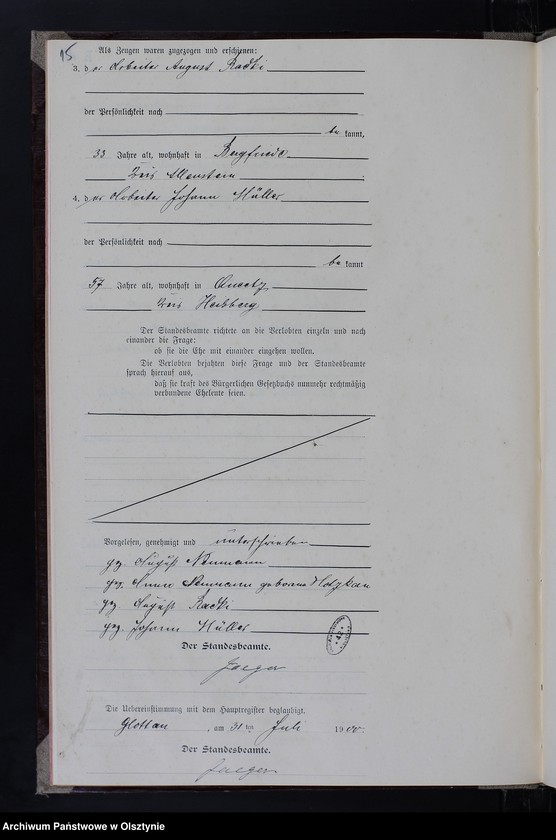 15
Als Zeugen waren zugezogen und erschienen:
3. der Arbeiter August Radki
der Persönlichkeit nach
be kannt,
33 Jahre alt, wohnhaft in Bergfriede
Kreis Allenstein
4. der Arbeiter Johann Müller
der Persönlichkeit nach
be kannt
57 Jahre alt, wohnhaft in Queetz
Kreis Heilsberg
Der Standesbeamte richtete an die Verlobten einzeln und nach
einander die Frage:
ob sie die Ehe mit einander eingehen wollen.
Die Verlobten bejahten diese Frage und der Standesbeamte
sprach hierauf aus,
daß sie kraft des Bürgerlichen Gesetzbuchs nunmehr rechtmäßig
verbundene Eheleute seien.
Vorgelesen, genehmigt und unterschrieben
gez. August Neumann
gez. Anna Neumann geborene
gez. August Radki
gez. Johann Müller
Der Standesbeamte.
Jaeger
Die Uebereinstimmung mit dem Hauptregister beglaubigt.
Glottau, am 31ten Juli 1900.
Der Standesbeamte.
Jaeger
Archiwum Państwowe w Olsztynie